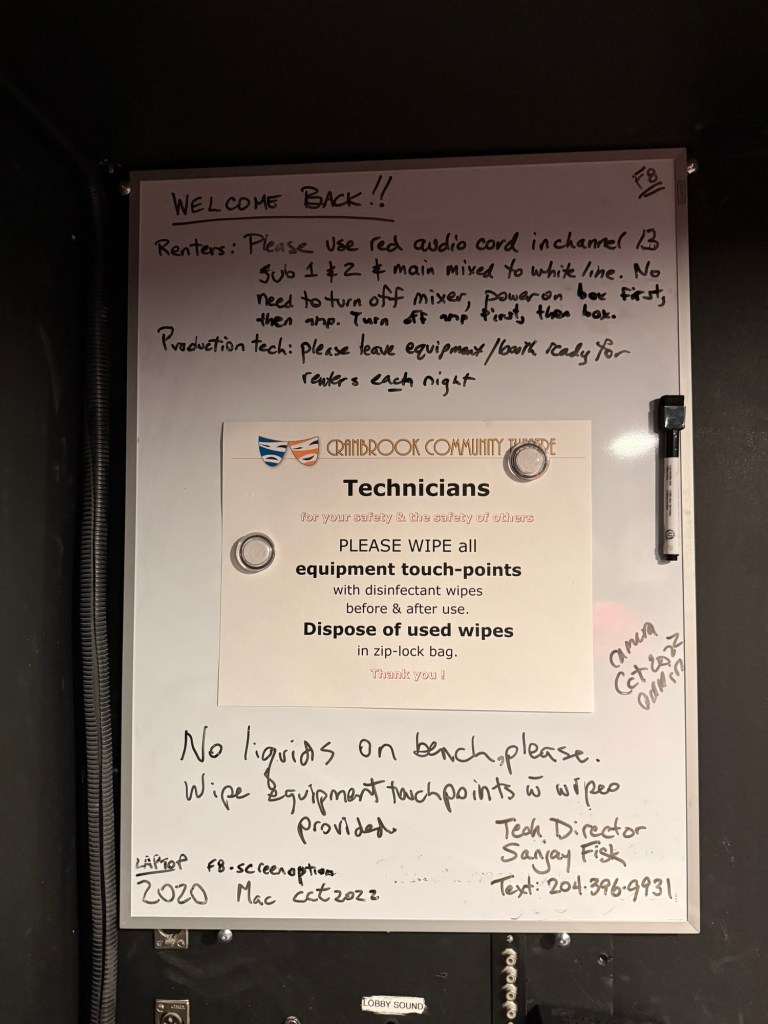 F8
WELCOME BACK!!
Renters: Please use red audio cord in channel 13
sub 1 & 2 & main mixed to white line. No
need to turn off mixer, power on box first,
then amp. Turn off amp first, then box.
Production tech: please leave equipment/booth ready for
renters each night
CRANBROOK COMMUNITY THEATRE
Technicians
for your safety & the safety of others
PLEASE WIPE all
equipment touch-points
with disinfectant wipes
before & after use.
Dispose of used wipes
in zip-lock bag.
Thank you !
camera
cct2022
No liquids on bench, please.
Wipe equipment touchpoints w wipes
provided
Tech Director
Sanjay Fisk
Text: 204·396·9931
LAPTOP F8-screen option
2020 Mac cct2022
LOBBY SOUND